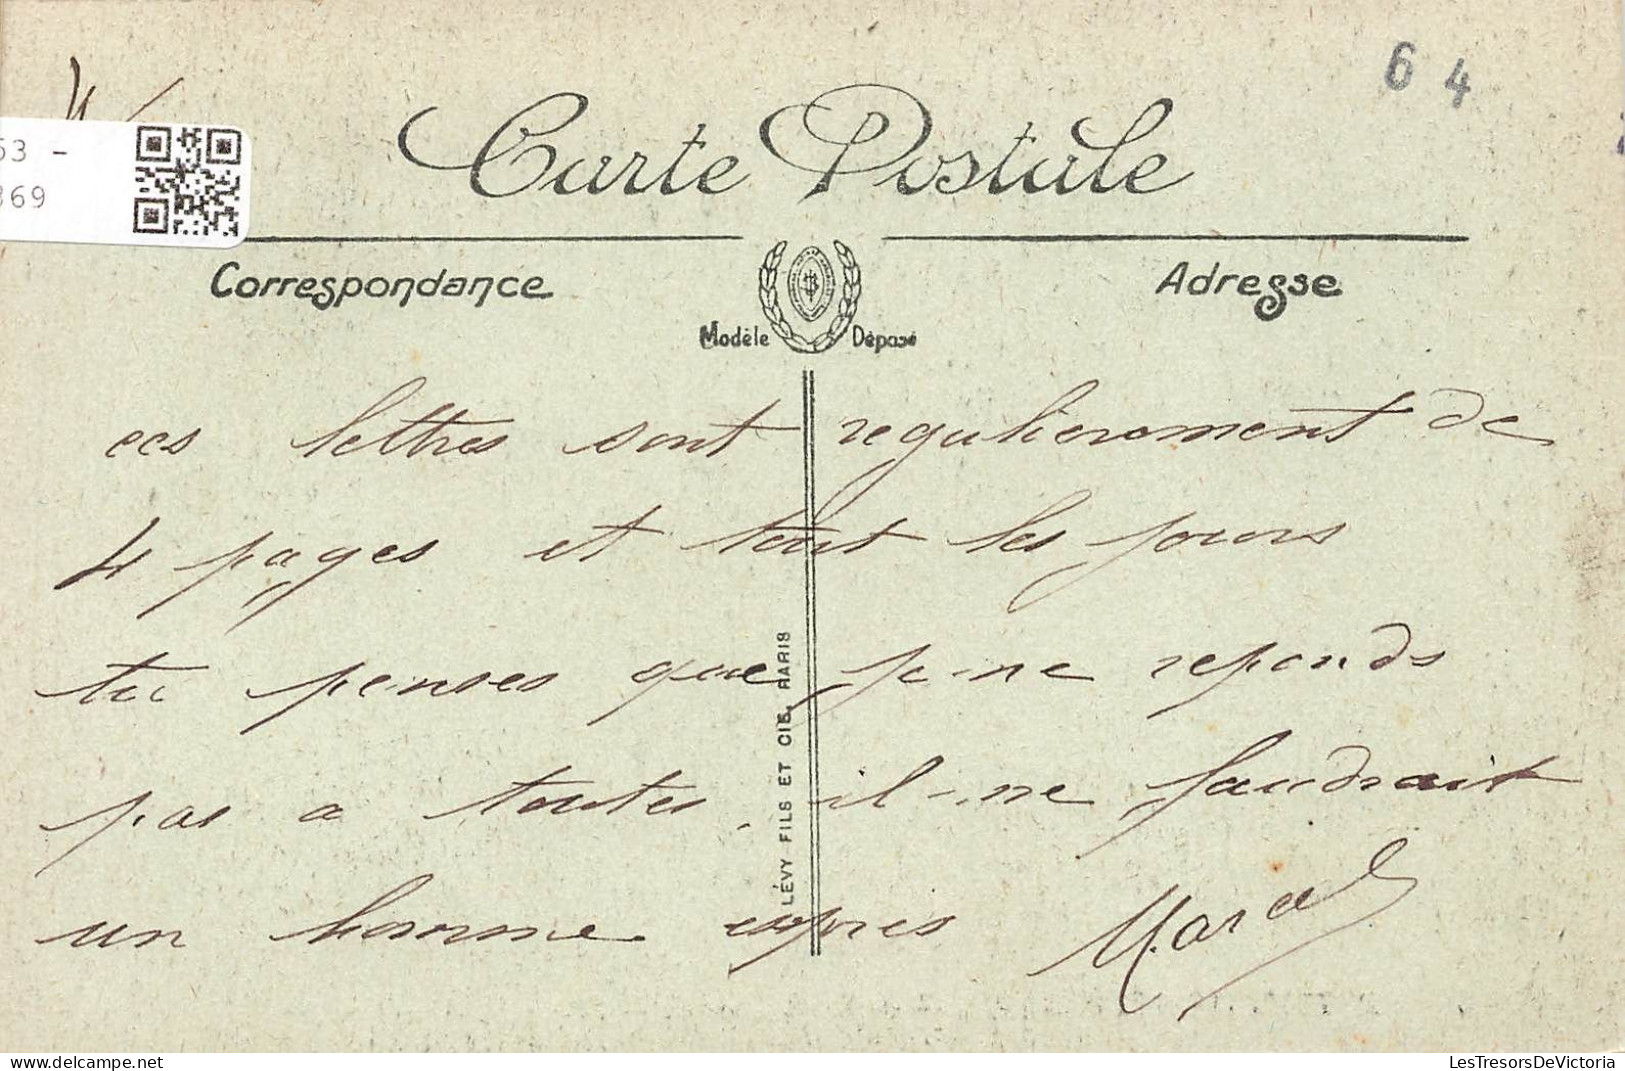 64
53 -
369
Carte Postale
Correspondance
Adresse
Modèle Déposé
ces lettres sont regulierement de
4 pages et tout les jours
tu penses que je ne reponds
pas a toutes. il ne faudrait
un homme expres
LÉVY FILS ET CIE, PARIS
LesTresorsDeVictoria